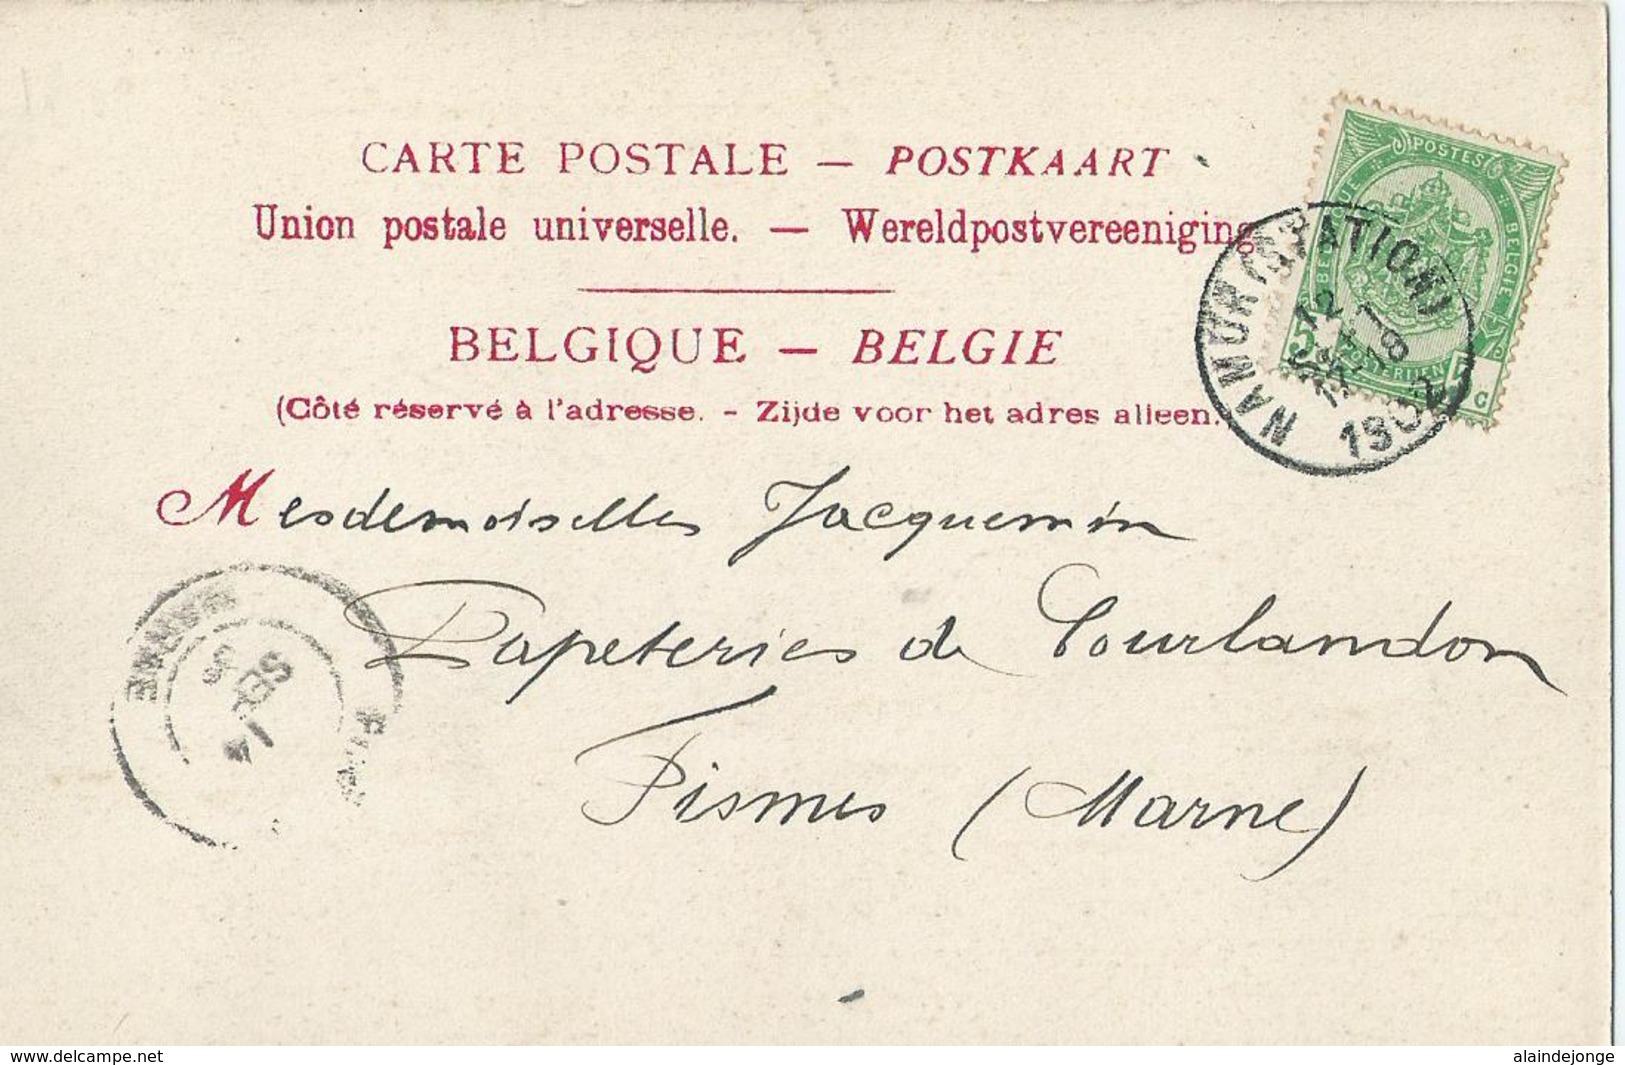 CARTE POSTALE — POSTKAART
Union postale universelle. — Wereldpostvereeniging
BELGIQUE — BELGIE
(Côté réservé à l'adresse. - Zijde voor het adres alleen.
POSTES
BELGIE
POSTERIJEN
NAMUR (STATION)
12
1902
Mesdemoiselles Jacquemin
Papeteries de Courlandon
Fismes (Marne)
MARNE
14
www.delcampe.net
alaindejonge